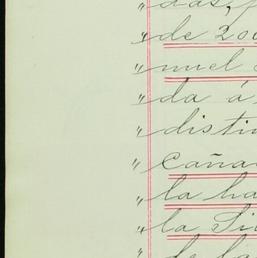 " das,
" de 200
" nuel
" da á
" distin
" caña
" la ha
" la Si
" de la